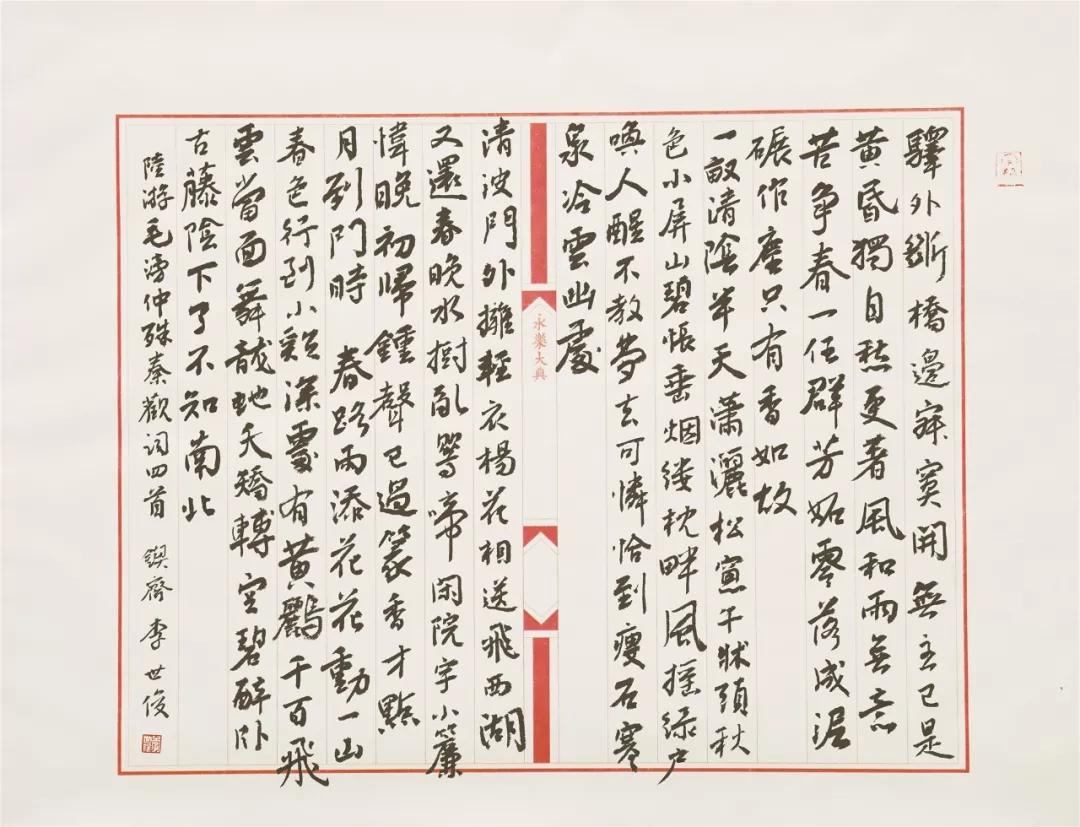 驛外斷橋邊寂寞開無主已是
黄昏獨自愁更著風和雨無意
苦争春一任群芳妬零落成泥
碾作塵只有香如故
一畝清陰半天潇灑松窗午牀頭秋
色小屏山碧帳垂烟縷枕畔風摇绿户
喚人醒不教夢去可憐恰到瘦石寒
泉冷雲幽處
永樂大典
清波門外擁輕衣楊花相送飛西湖
又還春晚水樹亂鶯啼閑院宇小簾
幃晚初歸鍾聲已過篆香才點
月到門時 春路雨添花花動一山
春色行到小谿深處有黄鸝千百飛
雲當面舞龍蛇夭矯轉空碧醉卧
古藤陰下了不知南北
陸游毛滂仲殊秦觀词四首 鍥齋 李世俊